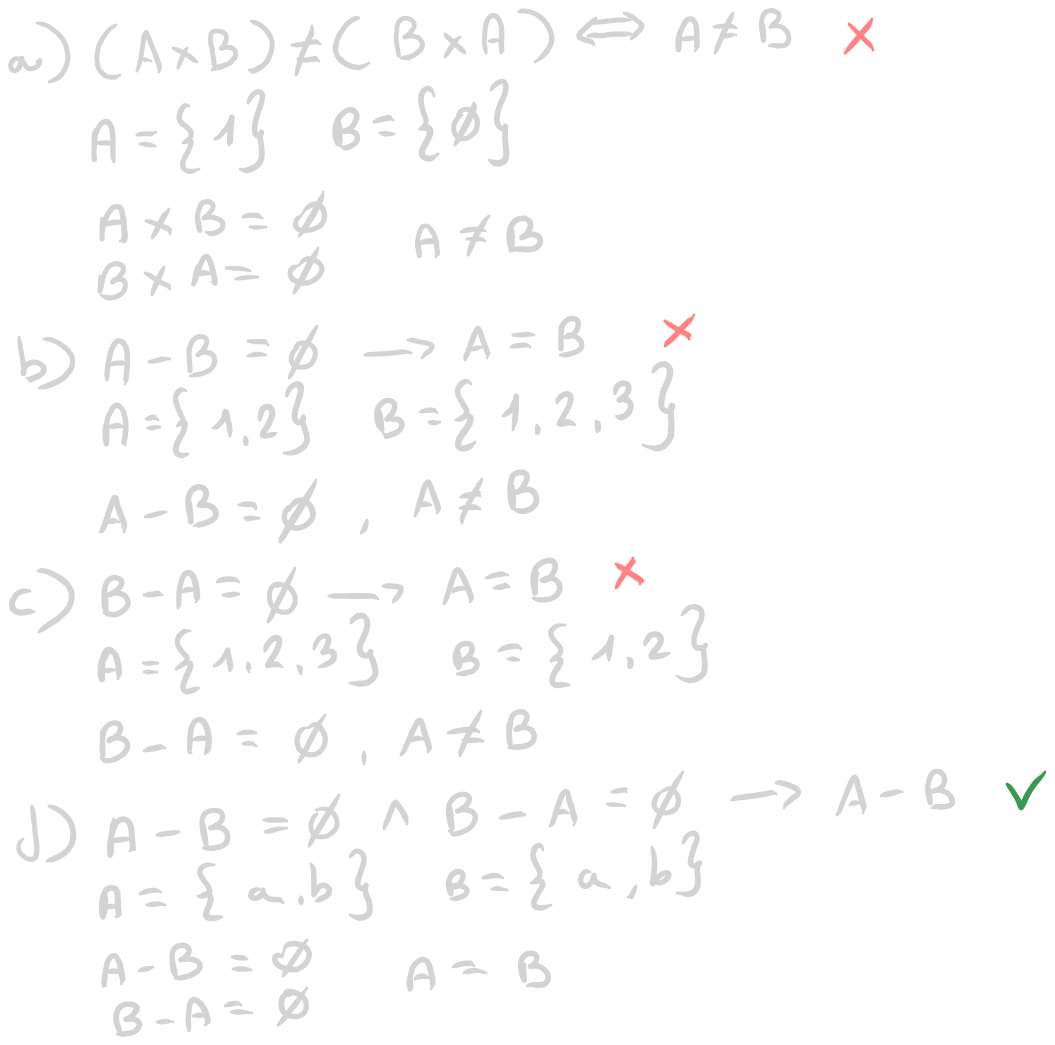 a) (A×B)≠(B×A) ⟺ A≠B ✗
A={1} B={∅}
A×B=∅
B×A=∅ A≠B
b) A-B=∅ → A=B ✗
A={1,2} B={1,2,3}
A-B=∅, A≠B
c) B-A=∅ → A=B ✗
A={1,2,3} B={1,2}
B-A=∅, A≠B
d) A-B=∅ ∧ B-A=∅ → A-B ✓
A={a,b} B={a,b}
A-B=∅
B-A=∅ A=B